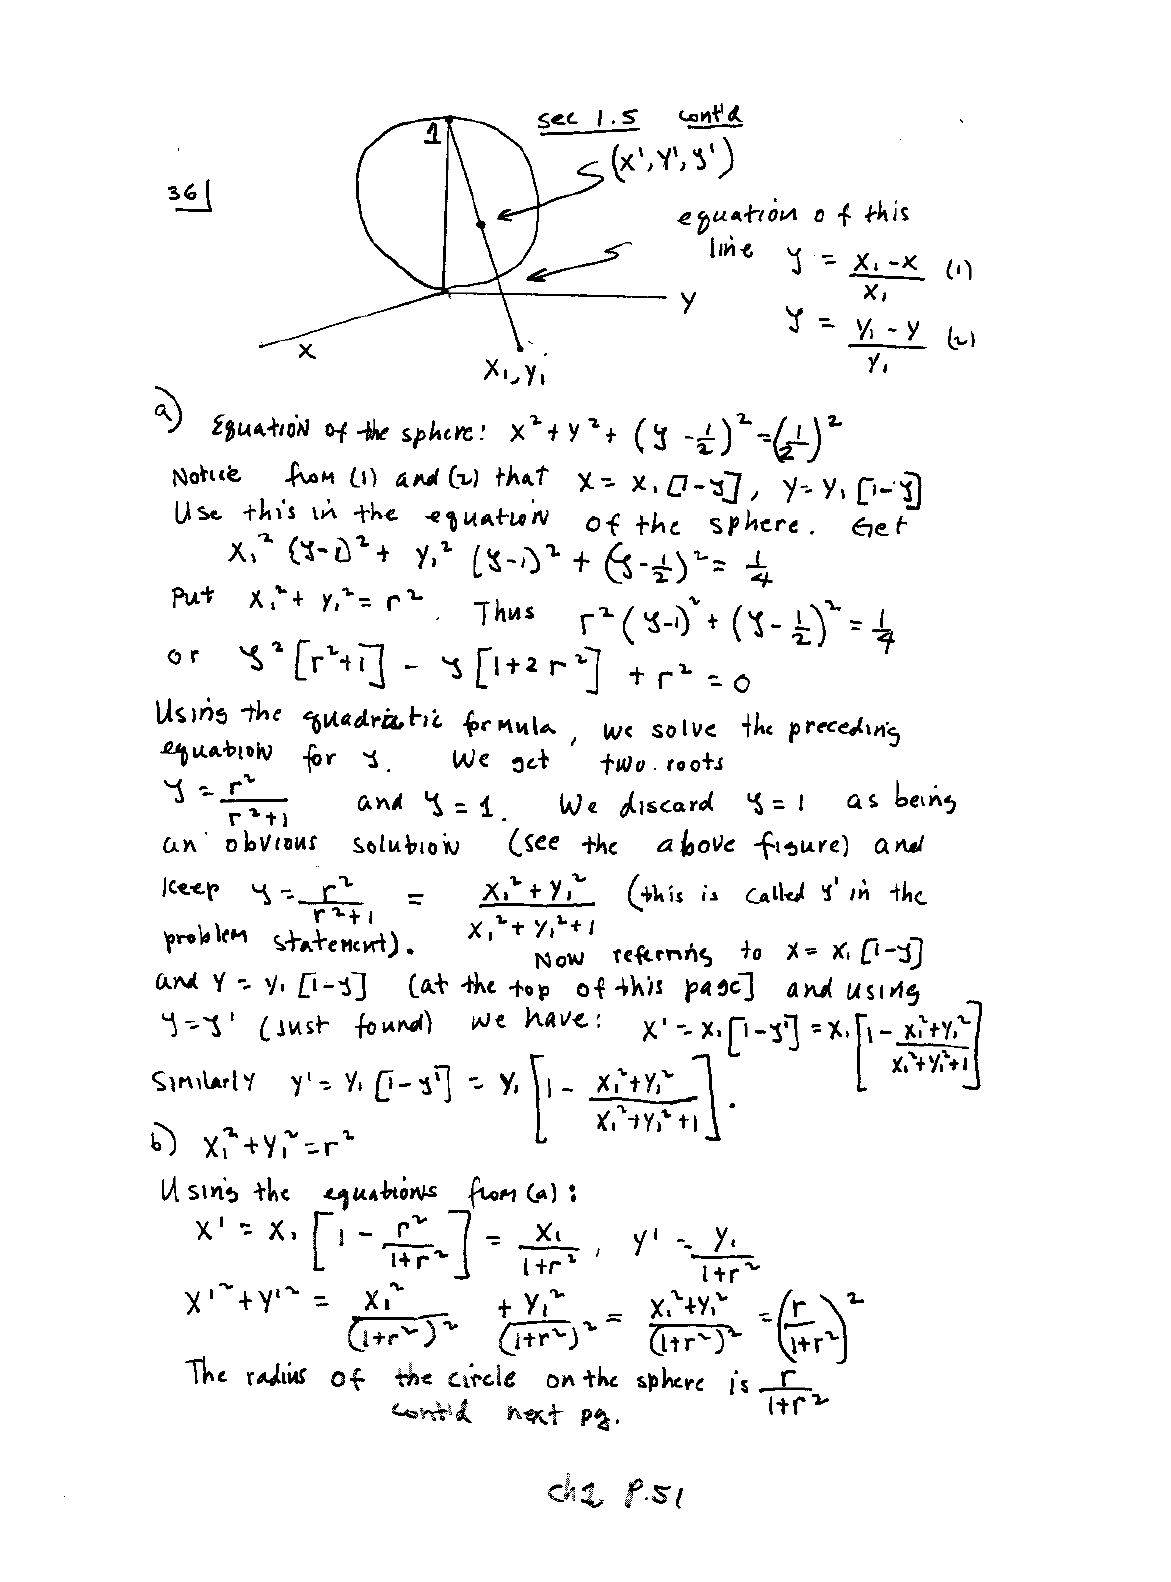 sec 1.5 cont'd
36
1
(x', y', z')
equation of this
line z = (x₁ - x)/x₁ (1)
z = (y₁ - y)/y₁ (2)
y
x
x₁, y₁
a) Equation of the sphere: x² + y² + (z - 1/2)² = (1/2)²
Notice from (1) and (2) that x = x₁[1-z], y = y₁[1-z]
Use this in the equation of the sphere. Get
x₁²(z-1)² + y₁²(z-1)² + (z-1/2)² = 1/4
Put x₁² + y₁² = r². Thus r²(z-1)² + (z-1/2)² = 1/4
or z²[r²+1] - z[1+2r²] + r² = 0
Using the quadratic formula, we solve the preceding
equation for z. We get two roots
z = r²/(r²+1) and z = 1. We discard z = 1 as being
an obvious solution (see the above figure) and
keep z = r²/(r²+1) = (x₁²+y₁²)/(x₁²+y₁²+1) (this is called z' in the
problem statement). Now referring to x = x₁[1-z]
and y = y₁[1-z] (at the top of this page] and using
z = z' (just found) we have: x' = x₁[1-z'] = x₁[1 - (x₁²+y₁²)/(x₁²+y₁²+1)]
Similarly y' = y₁[1-z'] = y₁[1 - (x₁²+y₁²)/(x₁²+y₁²+1)].
b) x₁² + y₁² = r²
Using the equations from (a):
x' = x₁[1 - r²/(1+r²)] = x₁/(1+r²), y' = y₁/(1+r²)
x'² + y'² = x₁²/(1+r²)² + y₁²/(1+r²)² = (x₁²+y₁²)/(1+r²)² = (r/(1+r²))²
The radius of the circle on the sphere is r/(1+r²)
cont'd next pg.
ch1 p.51